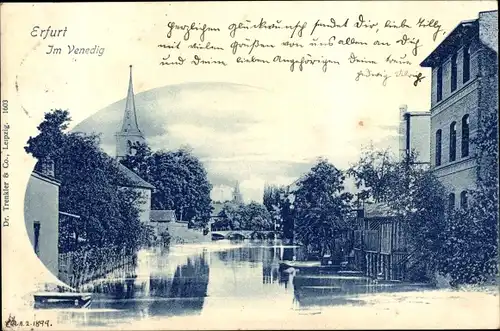 Erfurt
Im Venedig
Herzlichen Glückwunsch sendet Dir, liebe Tilly
mit vielen Grüßen von uns allen an Dich
und Deinen lieben Angehörigen Deine treue
Hedwig
Dr. Trenkler & Co., Leipzig. 1603
2.1899.